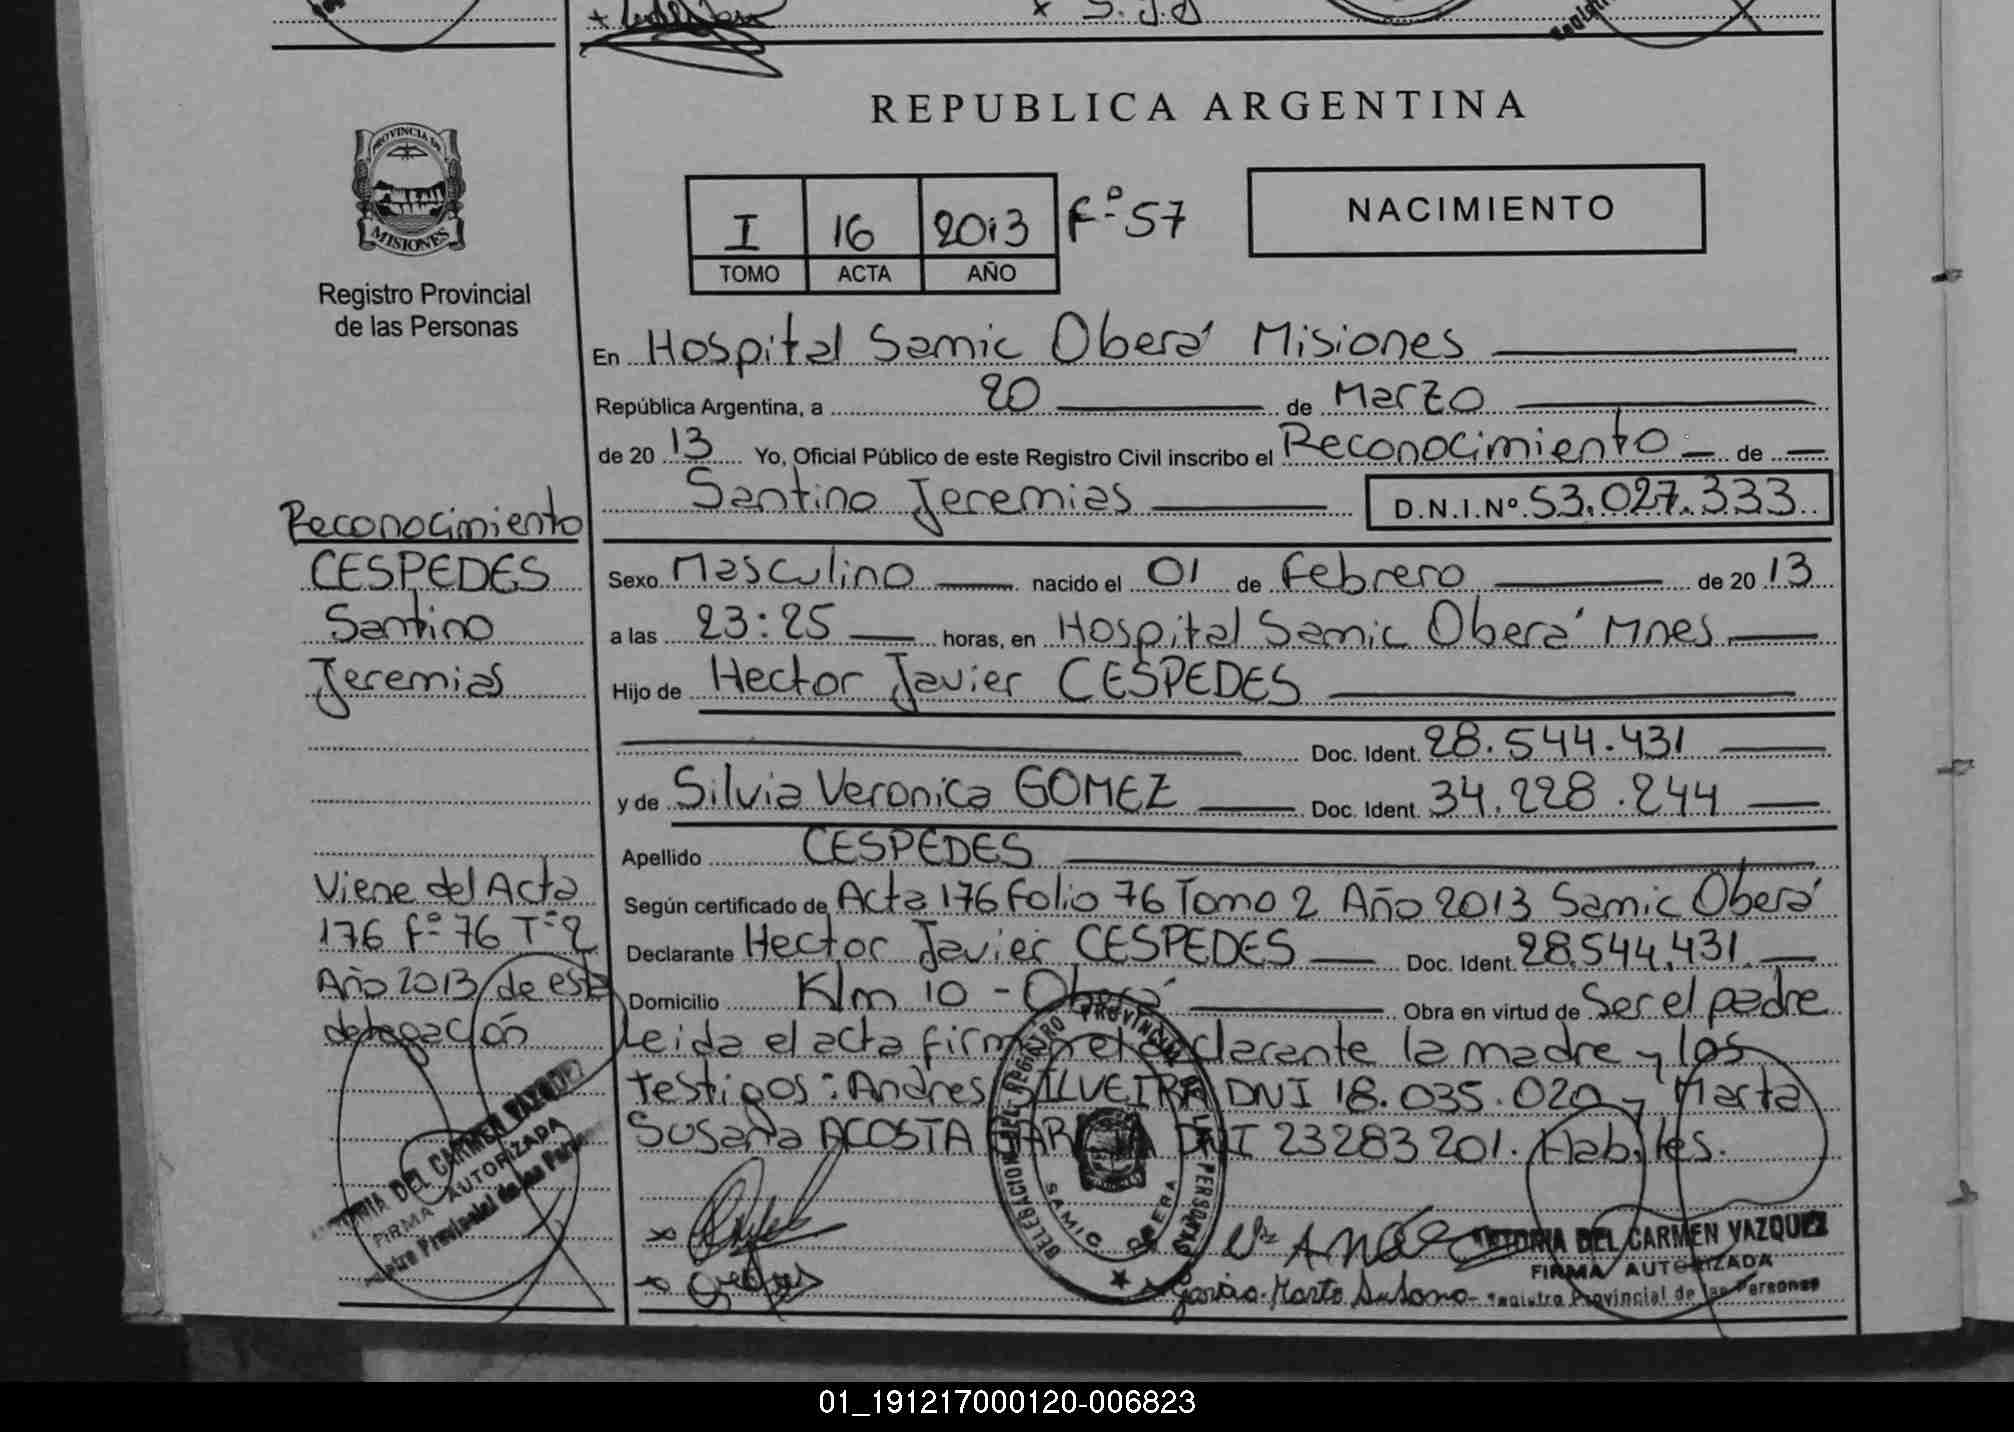 REPUBLICA ARGENTINA
PROVINCIA DE
MISIONES
Registro Provincial
de las Personas
I 16 2013 Fº 57
TOMO ACTA AÑO
NACIMIENTO
En Hospital Samic Oberá Misiones
República Argentina, a 20 de Marzo
de 20 13 Yo, Oficial Público de este Registro Civil inscribo el Reconocimiento de
Santino Jeremias D.N.I.Nº 53.027.333
Sexo Masculino nacido el 01 de Febrero de 20 13
a las 23:25 horas, en Hospital Samic Oberá Mnes
Hijo de Hector Javier CESPEDES
Doc. Ident. 28.544.431
y de Silvia Veronica GOMEZ Doc. Ident. 34.228.244
Apellido CESPEDES
Según certificado de Acta 176 Folio 76 Tomo 2 Año 2013 Samic Oberá
Declarante Hector Javier CESPEDES Doc. Ident. 28.544.431
Domicilio Klm 10 - Oberá Obra en virtud de Ser el padre
Leida el acta firman el declarante la madre y los
testigos: Andres SILVEIRA DNI 18.035.020 y Marta
Susana ACOSTA DNI 23283201. Habiles.
Reconocimiento
CESPEDES
Santino
Jeremias
Viene del Acta
176 Fº 76 Tº 2
Año 2013 de esta
delegación
DELEGACION DEL REGISTRO PROVINCIAL DE LAS PERSONAS
SAMIC OBERA
DEL CARMEN VAZQUEZ
FIRMA AUTORIZADA
Provincial de las
DEL CARMEN VAZQUEZ
FIRMA AUTORIZADA
Registro Provincial de las Personas
01_191217000120-006823